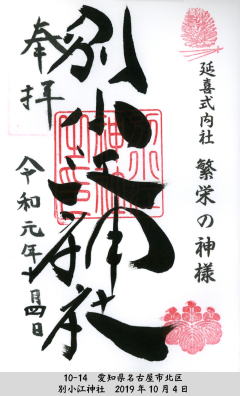 延喜式内社 繁栄の神様
別小江神社
奉拝
令和元年十月四日
10-14 愛知県名古屋市北区
別小江神社 2019年10月4日